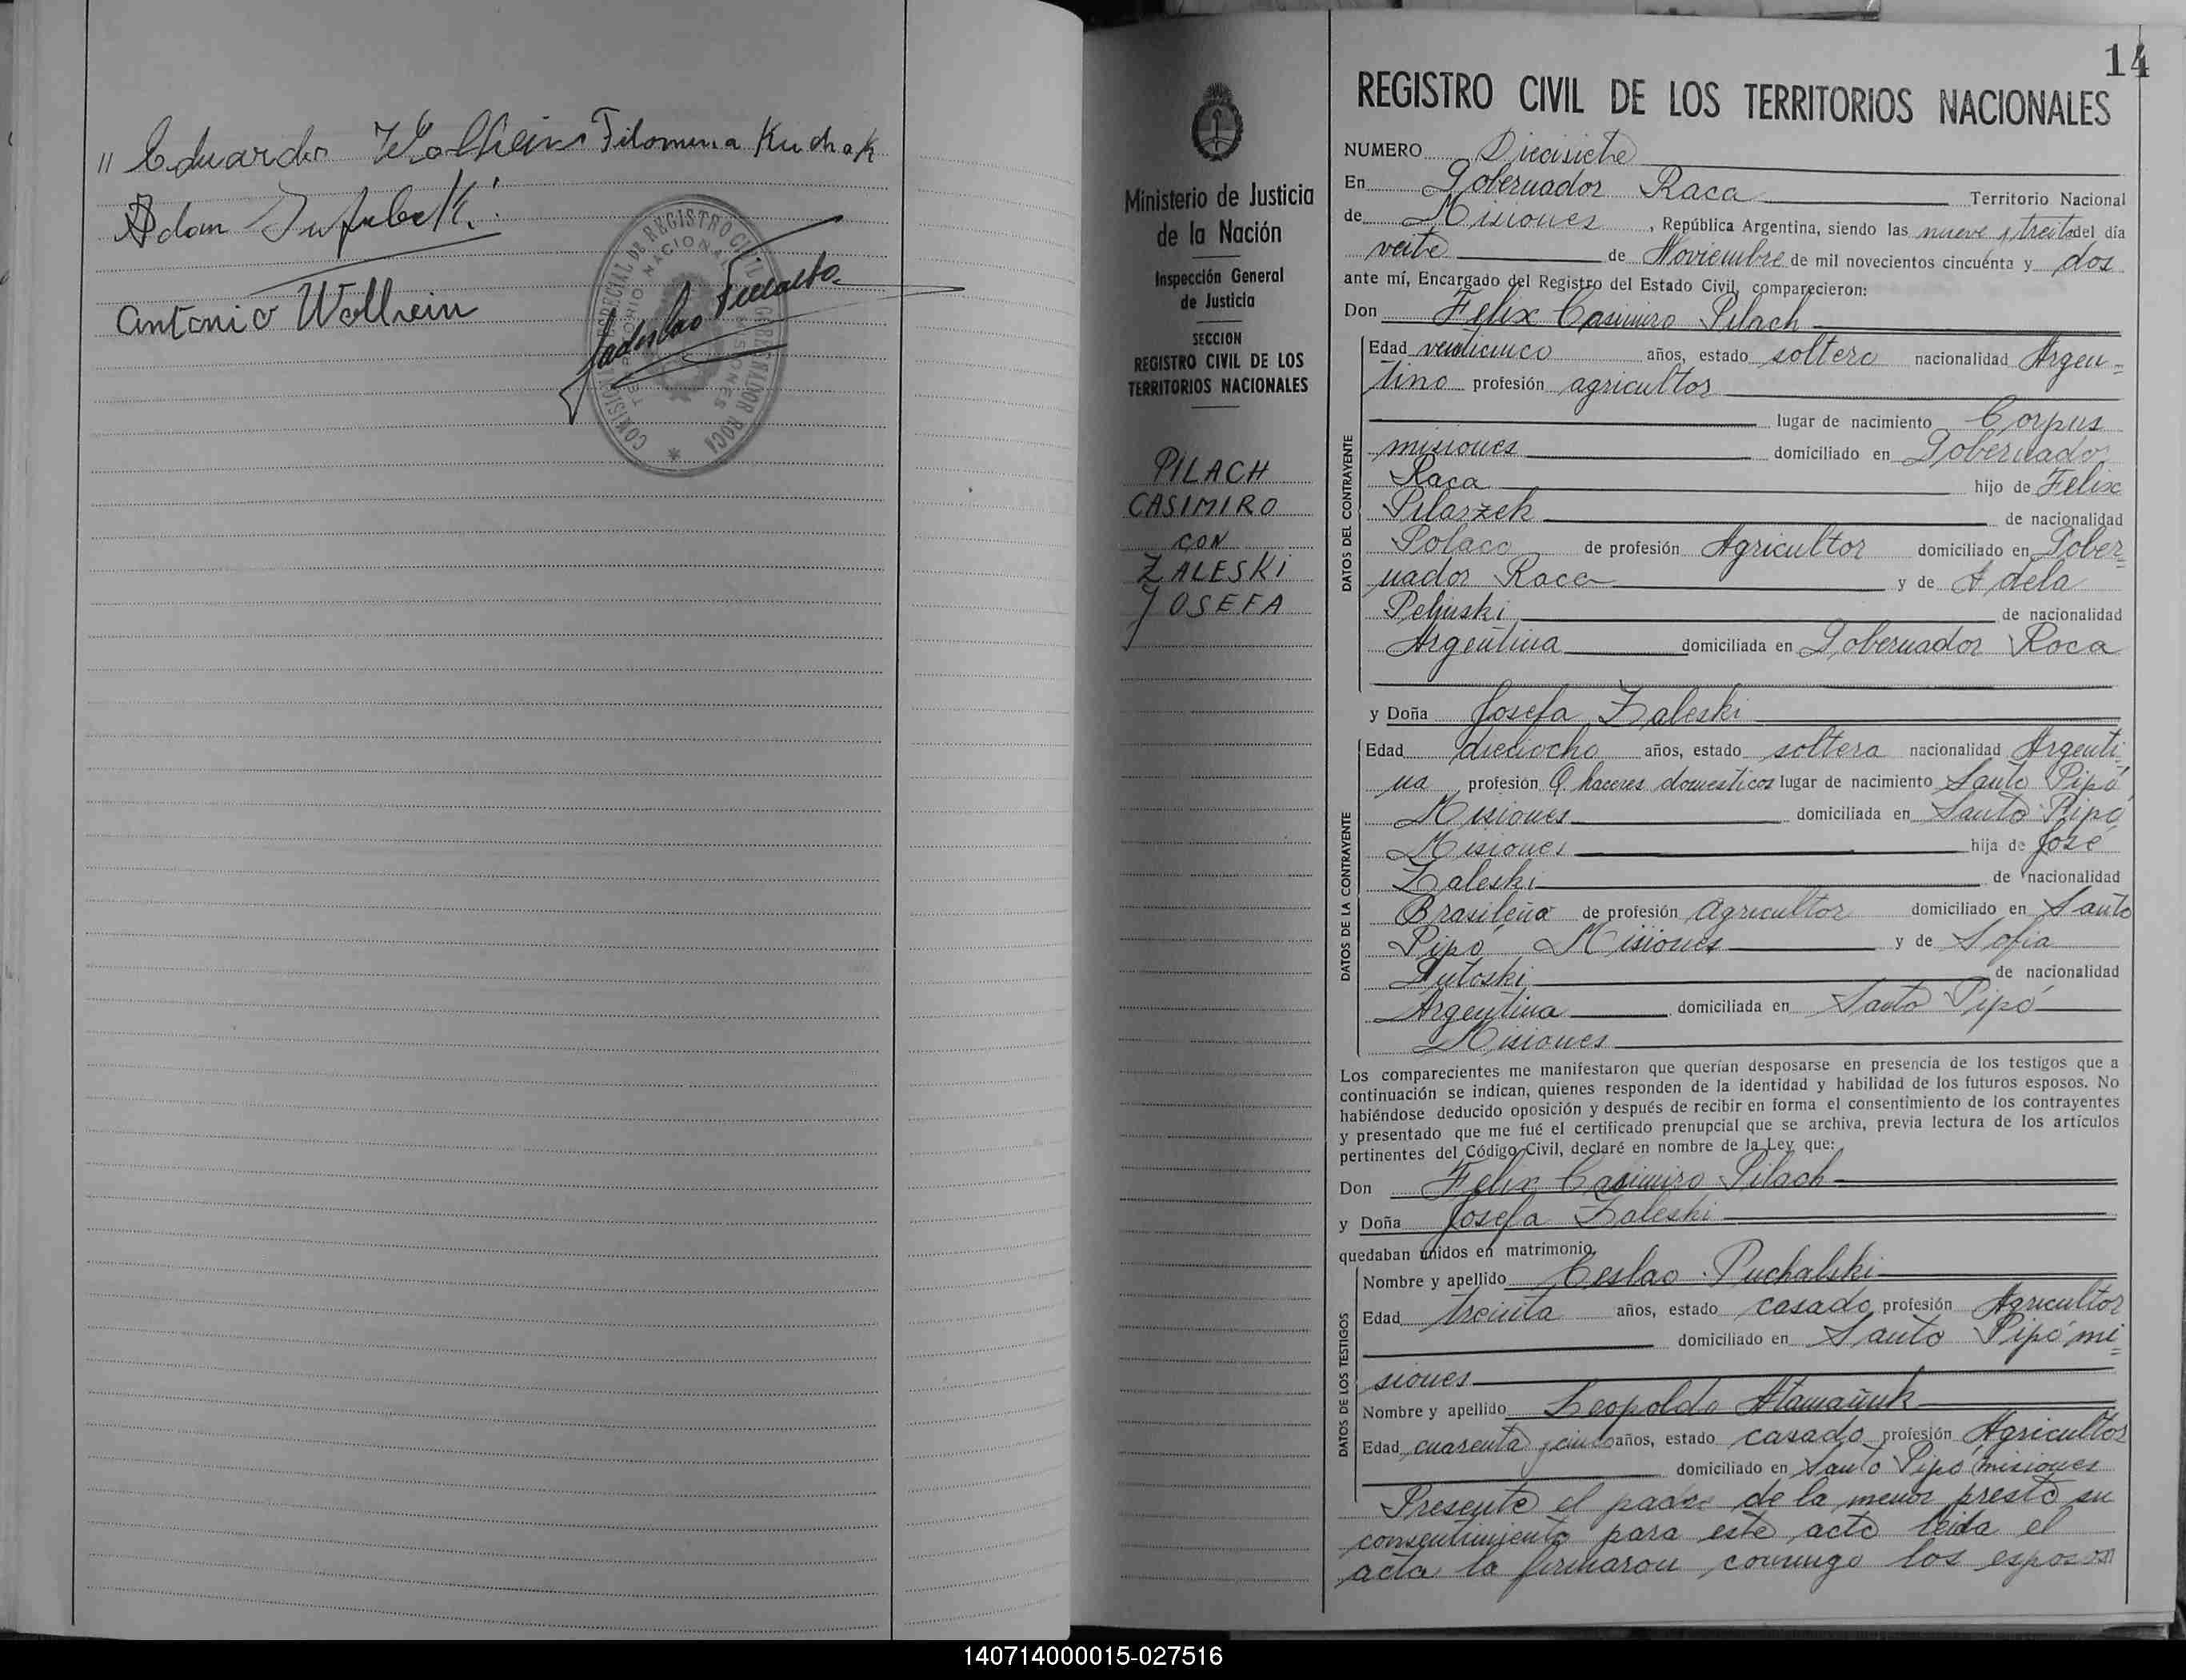 " Eduardo Wolhein Filomena Kuchak
Adam
Antonio Wolhein
Ladislao
COMISION ESPECIAL DE REGISTRO CIVIL GOBERNADOR ROCA
TERRITORIO NACIONAL MISIONES
14
REGISTRO CIVIL DE LOS TERRITORIOS NACIONALES
Ministerio de Justicia
de la Nación
Inspección General
de Justicia
SECCION
REGISTRO CIVIL DE LOS
TERRITORIOS NACIONALES
PILACH
CASIMIRO
CON
ZALESKI
JOSEFA
NUMERO Diecisiete
En Gobernador Roca Territorio Nacional
de Misiones, República Argentina, siendo las nueve y treita del día
veite de Noviembre de mil novecientos cincuenta y dos
ante mí, Encargado del Registro del Estado Civil, comparecieron:
Don Felix Casimiro Pilach
DATOS DEL CONTRAYENTE
Edad veinticinco años, estado soltero nacionalidad Argen=
tino profesión agricultor
lugar de nacimiento Corpus
misiones domiciliado en Gobernador
Roca hijo de Felix
Pilarzek de nacionalidad
Polaco de profesión Agricultor domiciliado en Gober=
nador Roca y de Adela
de nacionalidad
Argentina domiciliada en Gobernador Roca
y Doña Josefa Zaleski
DATOS DE LA CONTRAYENTE
Edad dieciocho años, estado soltera nacionalidad Argenti=
na profesión Q. haceres domesticos lugar de nacimiento Santo Pipó
Misiones domiciliada en Santo Pipó
Misiones hija de José
Zaleski de nacionalidad
Brasileña de profesión Agricultor domiciliado en Santo
Pipó Misiones y de Sofia
Dutoski de nacionalidad
Argentina domiciliada en Santo Pipó
Misiones
Los comparecientes me manifestaron que querían desposarse en presencia de los testigos que a
continuación se indican, quienes responden de la identidad y habilidad de los futuros esposos. No
habiéndose deducido oposición y después de recibir en forma el consentimiento de los contrayentes
y presentado que me fué el certificado prenupcial que se archiva, previa lectura de los artículos
pertinentes del Código Civil, declaré en nombre de la Ley que:
Don Felix Casimiro Pilach
y Doña Josefa Zaleski
quedaban unidos en matrimonio.
DATOS DE LOS TESTIGOS
Nombre y apellido Ceslao Puchalski
Edad treinta años, estado casado profesión Agricultor
domiciliado en Santo Pipó mi=
siones
Nombre y apellido Leopoldo Atamañuk
Edad cuarenta y cinco años, estado casado profesión Agricultor
domiciliado en Santo Pipó misiones
Presente el padre de la menor presto su
consentimiento para este acto leida el
acta la firmaron conmigo los esposos
140714000015-027516